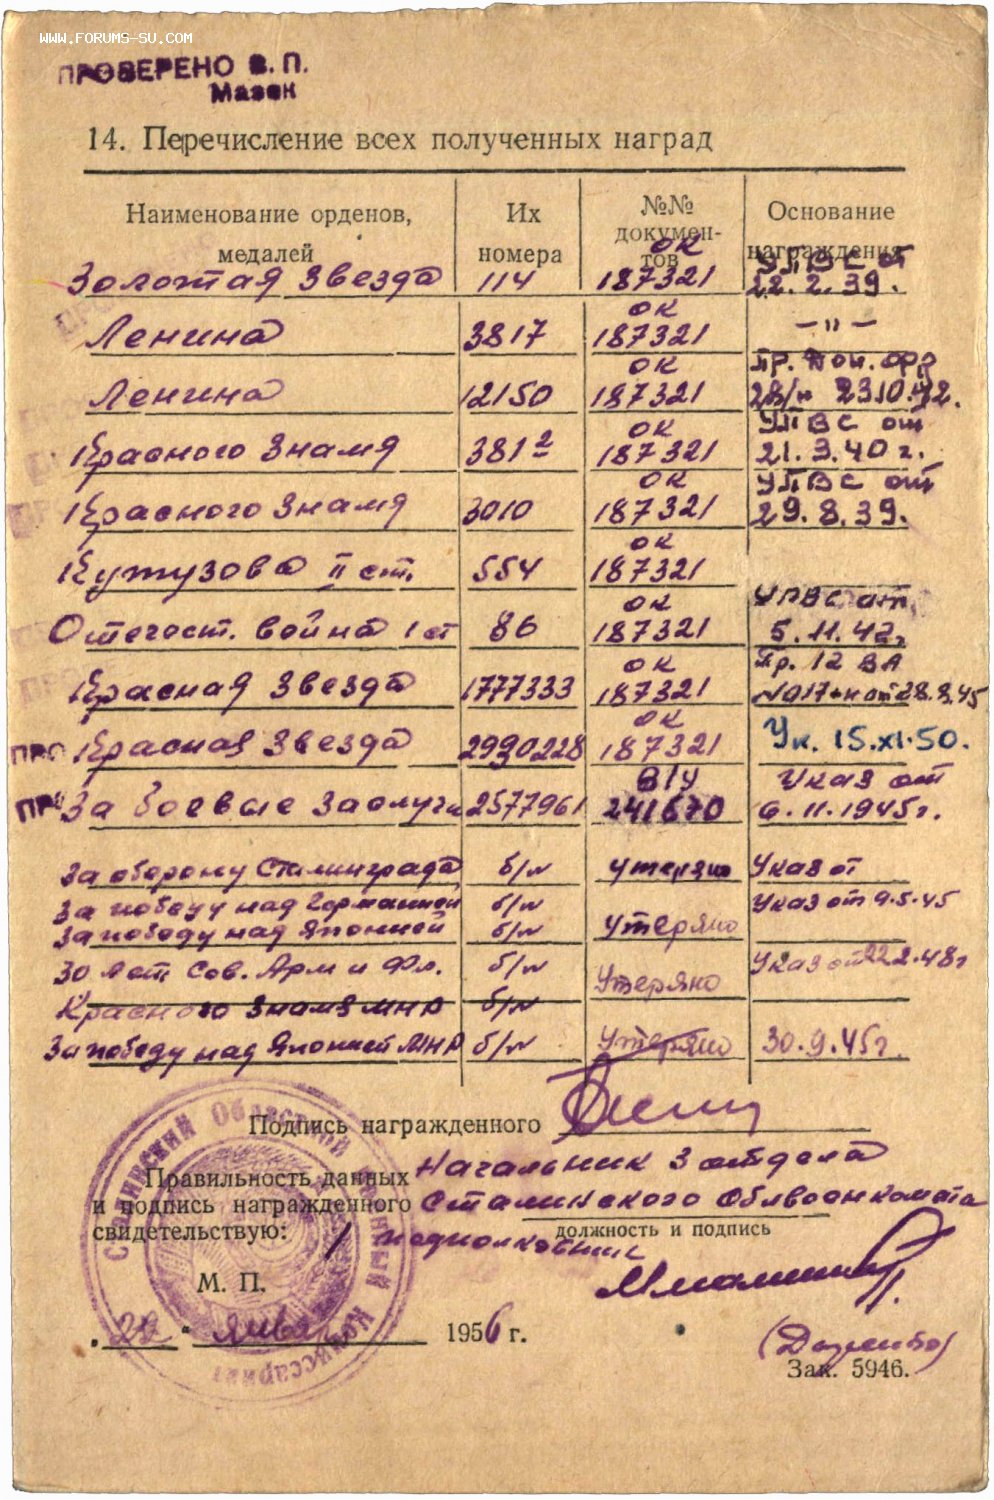 WWW.FORUMS-SU.COM
ПРОВЕРЕНО В. П.
Мазек
14. Перечисление всех полученных наград
Наименование орденов, медалей | Их номера | №№ документов | Основание награждения
Золотая Звезда 114 ОК 187321 УПВС от 22.2.39.
Ленина 3817 ОК 187321 —"—
Ленина 12150 ОК 187321 Пр. 28/н 23.10.42.
Красного Знамя 381² ОК 187321 УПВС от 21.3.40 г.
Красного Знамя 3010 ОК 187321 УПВС от 29.8.39.
Кутузова II ст. 554 ОК 187321
Отечест. война I ст 86 ОК 187321 УПВС от 5.11.42г
Красная Звезда 1777333 ОК 187321 Пр. 12 ВА №017/н от 28.9.45
ПРО Красная Звезда 2990228 ОК 187321 Ук. 15.XI.50.
ПРО За боевые заслуги 2577961 В/У 241670 Указ от 6.11.1945г.
За оборону Сталинграда б/н утеряно Указ от
За победу над Германией б/н Указ от 9.5.45
За победу над Японией б/н утеряно
30 лет Сов. Арм и Фл. б/н Утеряно Указ от 22.2.48г
Красного Знамя МНР б/н
За победу над Японией МНР б/н Утеряно 30.9.45г.
Подпись награжденного
Правильность данных
и подпись награжденного
свидетельствую:
Начальник 3 отдела
Сталинского Облвоенкомата
должность и подпись
подполковник
М. П.
„22" января 1956 г.
Зак. 5946.
Сталинский Областной Военный Комиссариат